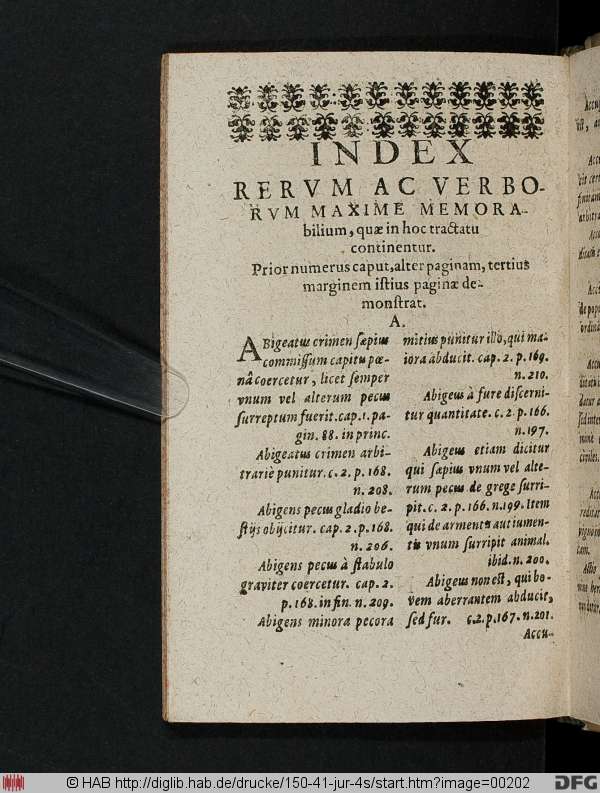 INDEX
RERVM AC VERBO-
RVM MAXIME MEMORA-
bilium, quæ in hoc tractatu
continentur.
Prior numerus caput, alter paginam, tertius
marginem istius paginæ de-
monstrat.
A.
ABigeatus crimen sæpius
commissum capitis pœ-
nâ coercetur, licet semper
vnum vel alterum pecus
surreptum fuerit. cap. 1. pa-
gin. 88. in princ.
Abigeatus crimen arbi-
trariè punitur. c. 2. p. 168.
n. 208.
Abigens pecus gladio be-
stijs obijcitur. cap. 2. p. 168.
n. 206.
Abigens pecus à stabulo
graviter coercetur. cap. 2.
p. 168. in fin. n. 209.
Abigens minora pecora
mitius punitur illo, qui ma-
iora abducit. cap. 2. p. 169.
n. 210.
Abigeus à fure discerni-
tur quantitate. c. 2. p. 166.
n. 197.
Abigeus etiam dicitur
qui sæpius vnum vel alte-
rum pecus de grege surri-
pit. c. 2. p. 166. n. 199. Item
qui de armentis aut iumen-
tis vnum surripit animal.
ibid. n. 200.
Abigeus non est, qui bo-
vem aberrantem abducit,
sed fur. c. 2. p. 167. n. 201.
Accu-
© HAB http://diglib.hab.de/drucke/150-41-jur-4s/start.htm?image=00202
DFG